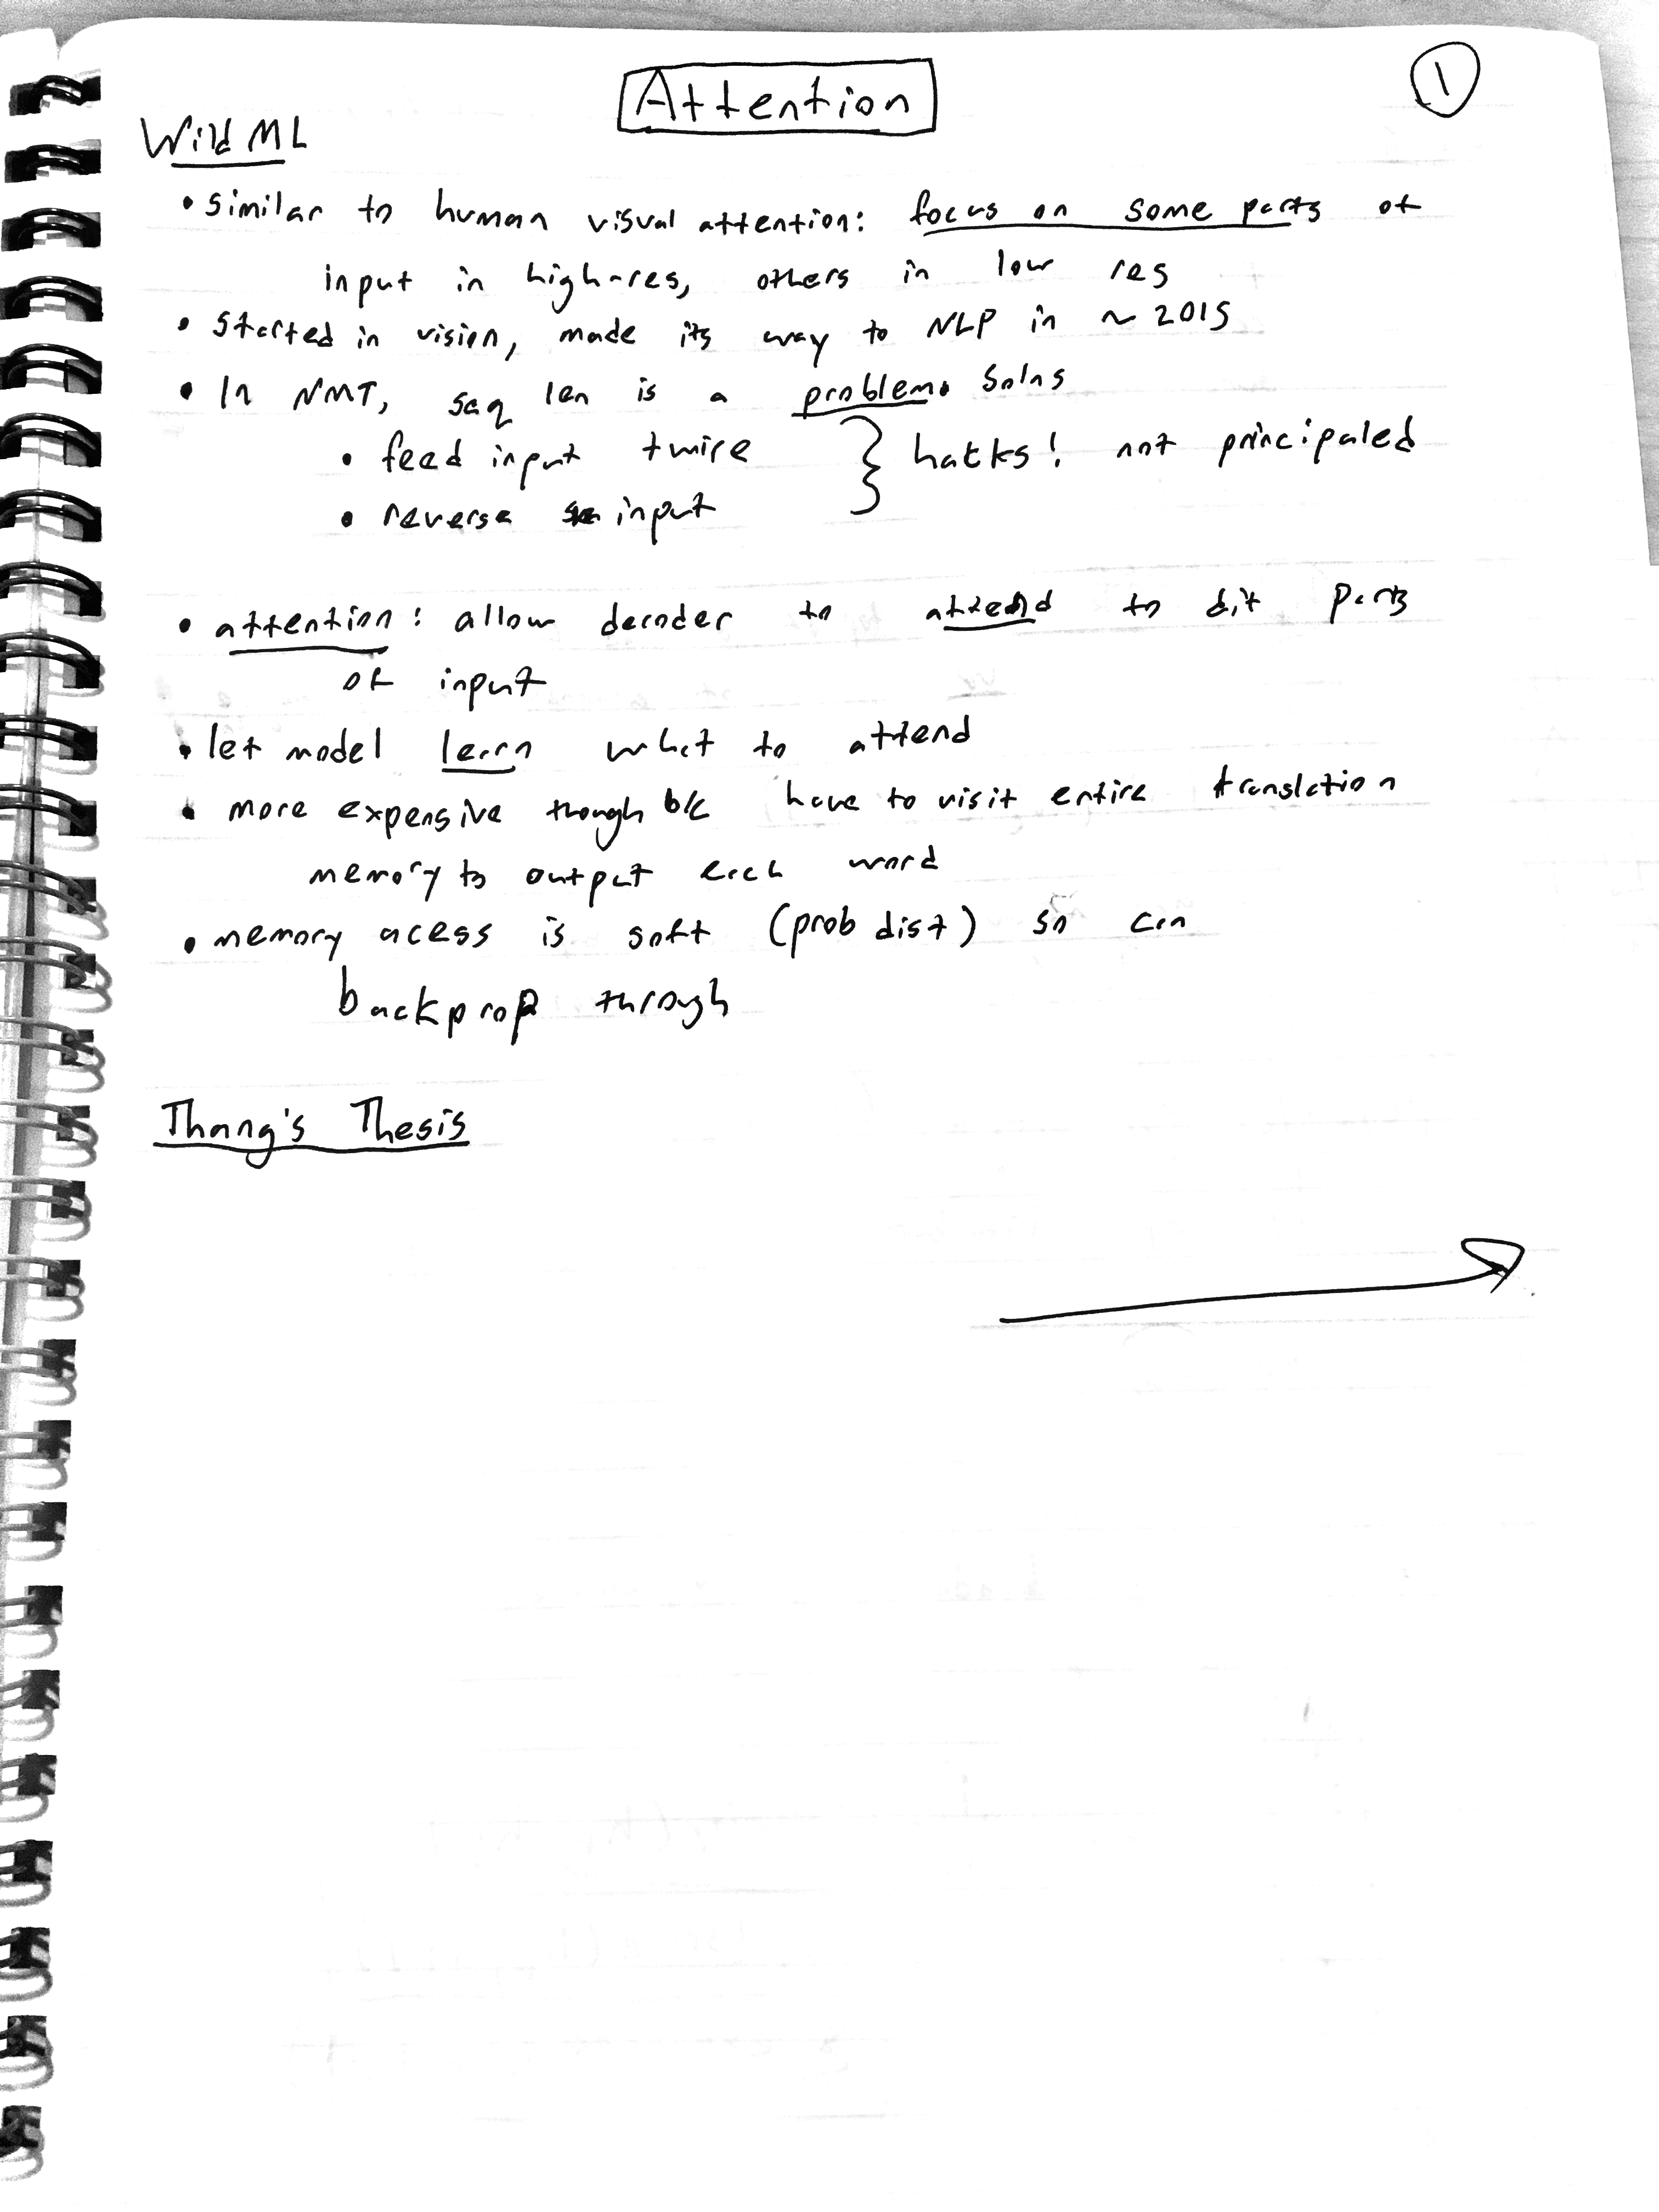 Attention
1
WildML
• similar to human visual attention: focus on some parts of
input in high-res, others in low res
• started in vision, made its way to NLP in ~2015
• In NMT, seq len is a problem. Solns
• feed input twice } hacks! not principaled
• reverse input
• attention: allow decoder to attend to dif parts
of input
• let model learn what to attend
• more expensive though b/c have to visit entire translation
memory to output each word
• memory acess is soft (prob dist) so can
backprop through
Thang's Thesis